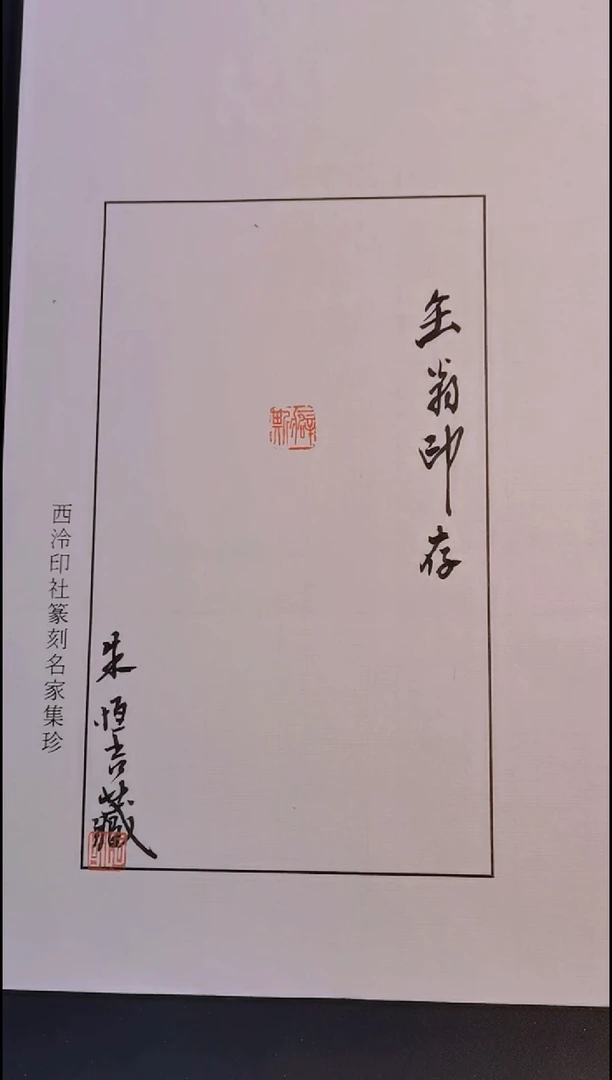 缶翁印存
朱恒吉藏
西泠印社篆刻名家集珍